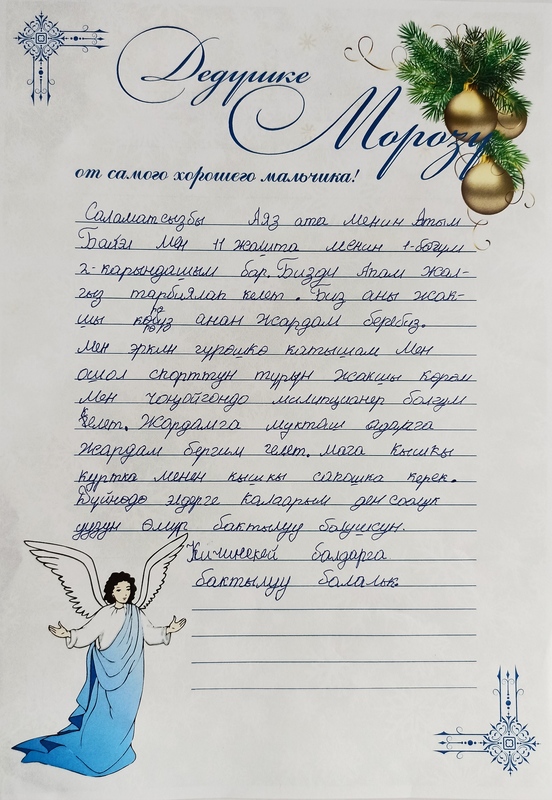 Дедушке
Морозу
от самого хорошего мальчика!
Саламатсызбы Аяз ата менин Атым
Байэл Мен 11 жашта менин 1-бөгүм
2-карындашым бар. Бизди Апам жал-
гыз тарбиялап келет. Биз аны жак-
шы анан жардам беребиз.
Мен эркин гүрөшкө катышам Мен
ошол спорттун түрүн жакшы көрөм
Мен чоңойгондо милиционер болгум
келет. Жардамга муктаж адамга
жардам бергим гелет. мага кышкы
куртка менен кышкы сапошка керек.
Дүйнөдө элдерге калаарым ден соолук
узун Өмүр бактылуу болушсун.
Кичинекей балдарга
бактылуу балалык.